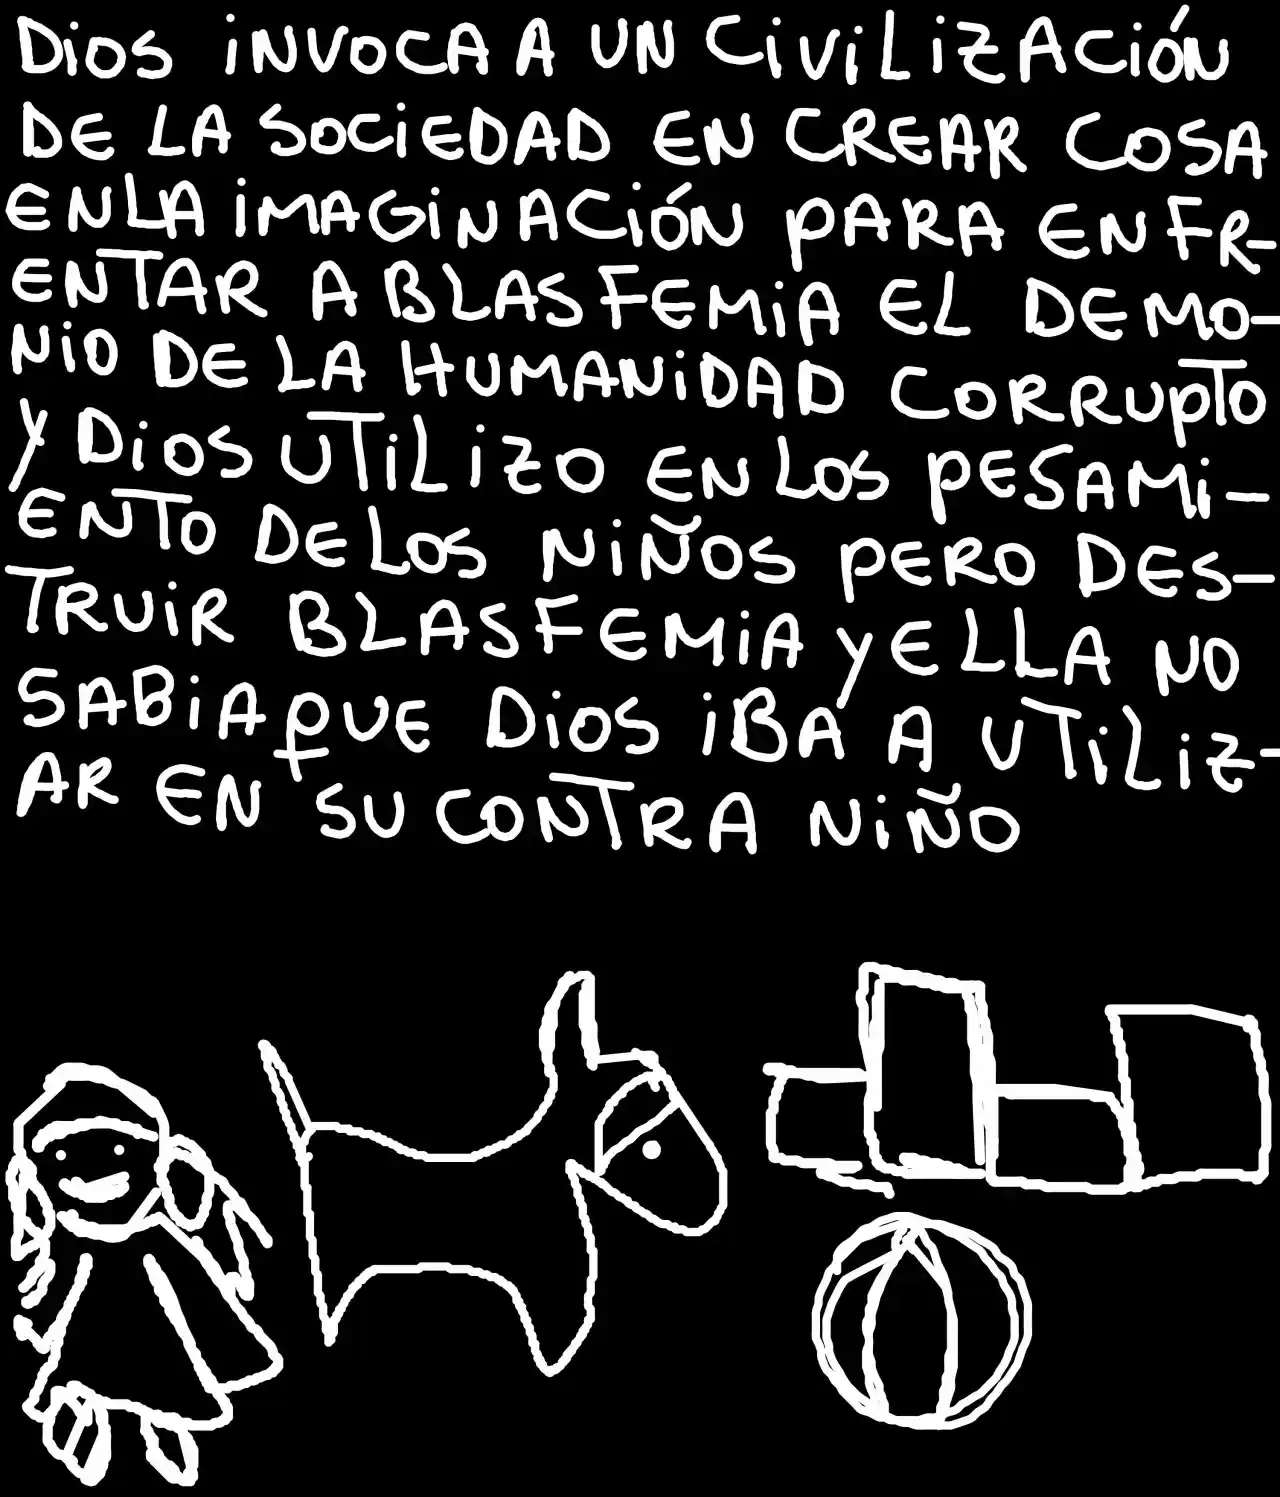 DiOS iNVOCA A UN CiViLiZACióN
DE LA SOCiEDAD EN CREAR COSA
EN LA iMAGiNACióN PARA ENFR-
ENTAR A BLASFEMiA EL DEMO-
NiO DE LA HUMANiDAD CORRUPTO
Y DiOS UTiLiZO EN LOS PESAMi-
ENTO DE LOS NiÑOS PERO DES-
TRUiR BLASFEMiA Y ELLA NO
SABiA QUE DiOS iBA A UTiLiZ-
AR EN SU CONTRA NiÑO